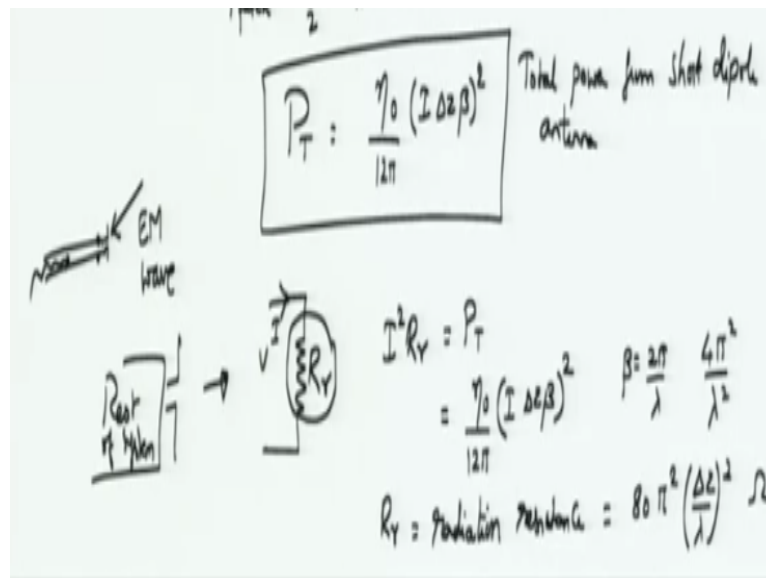 2
P_T = η₀/12π (I Δz β)²
Total power from short dipole
antenna
EM
wave
Rest
of system
V I R_r
I² R_r = P_T
= η₀/12π (I Δz β)²
β = 2π/λ 4π²/λ²
R_r = radiation resistance = 80 π² (Δz/λ)² Ω